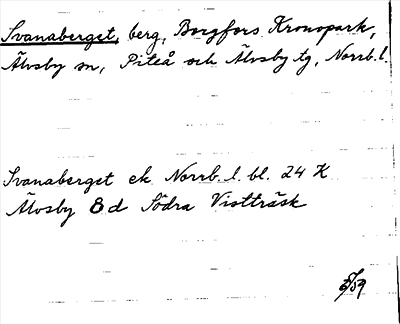 Svanaberget, berg, Borgfors Kronopark,
Älvsby sn, Piteå och Älvsby tg, Norrb. l.
Svanaberget ek Norrb. l. bl. 24 K
Älvsby 8d Södra Vistträsk